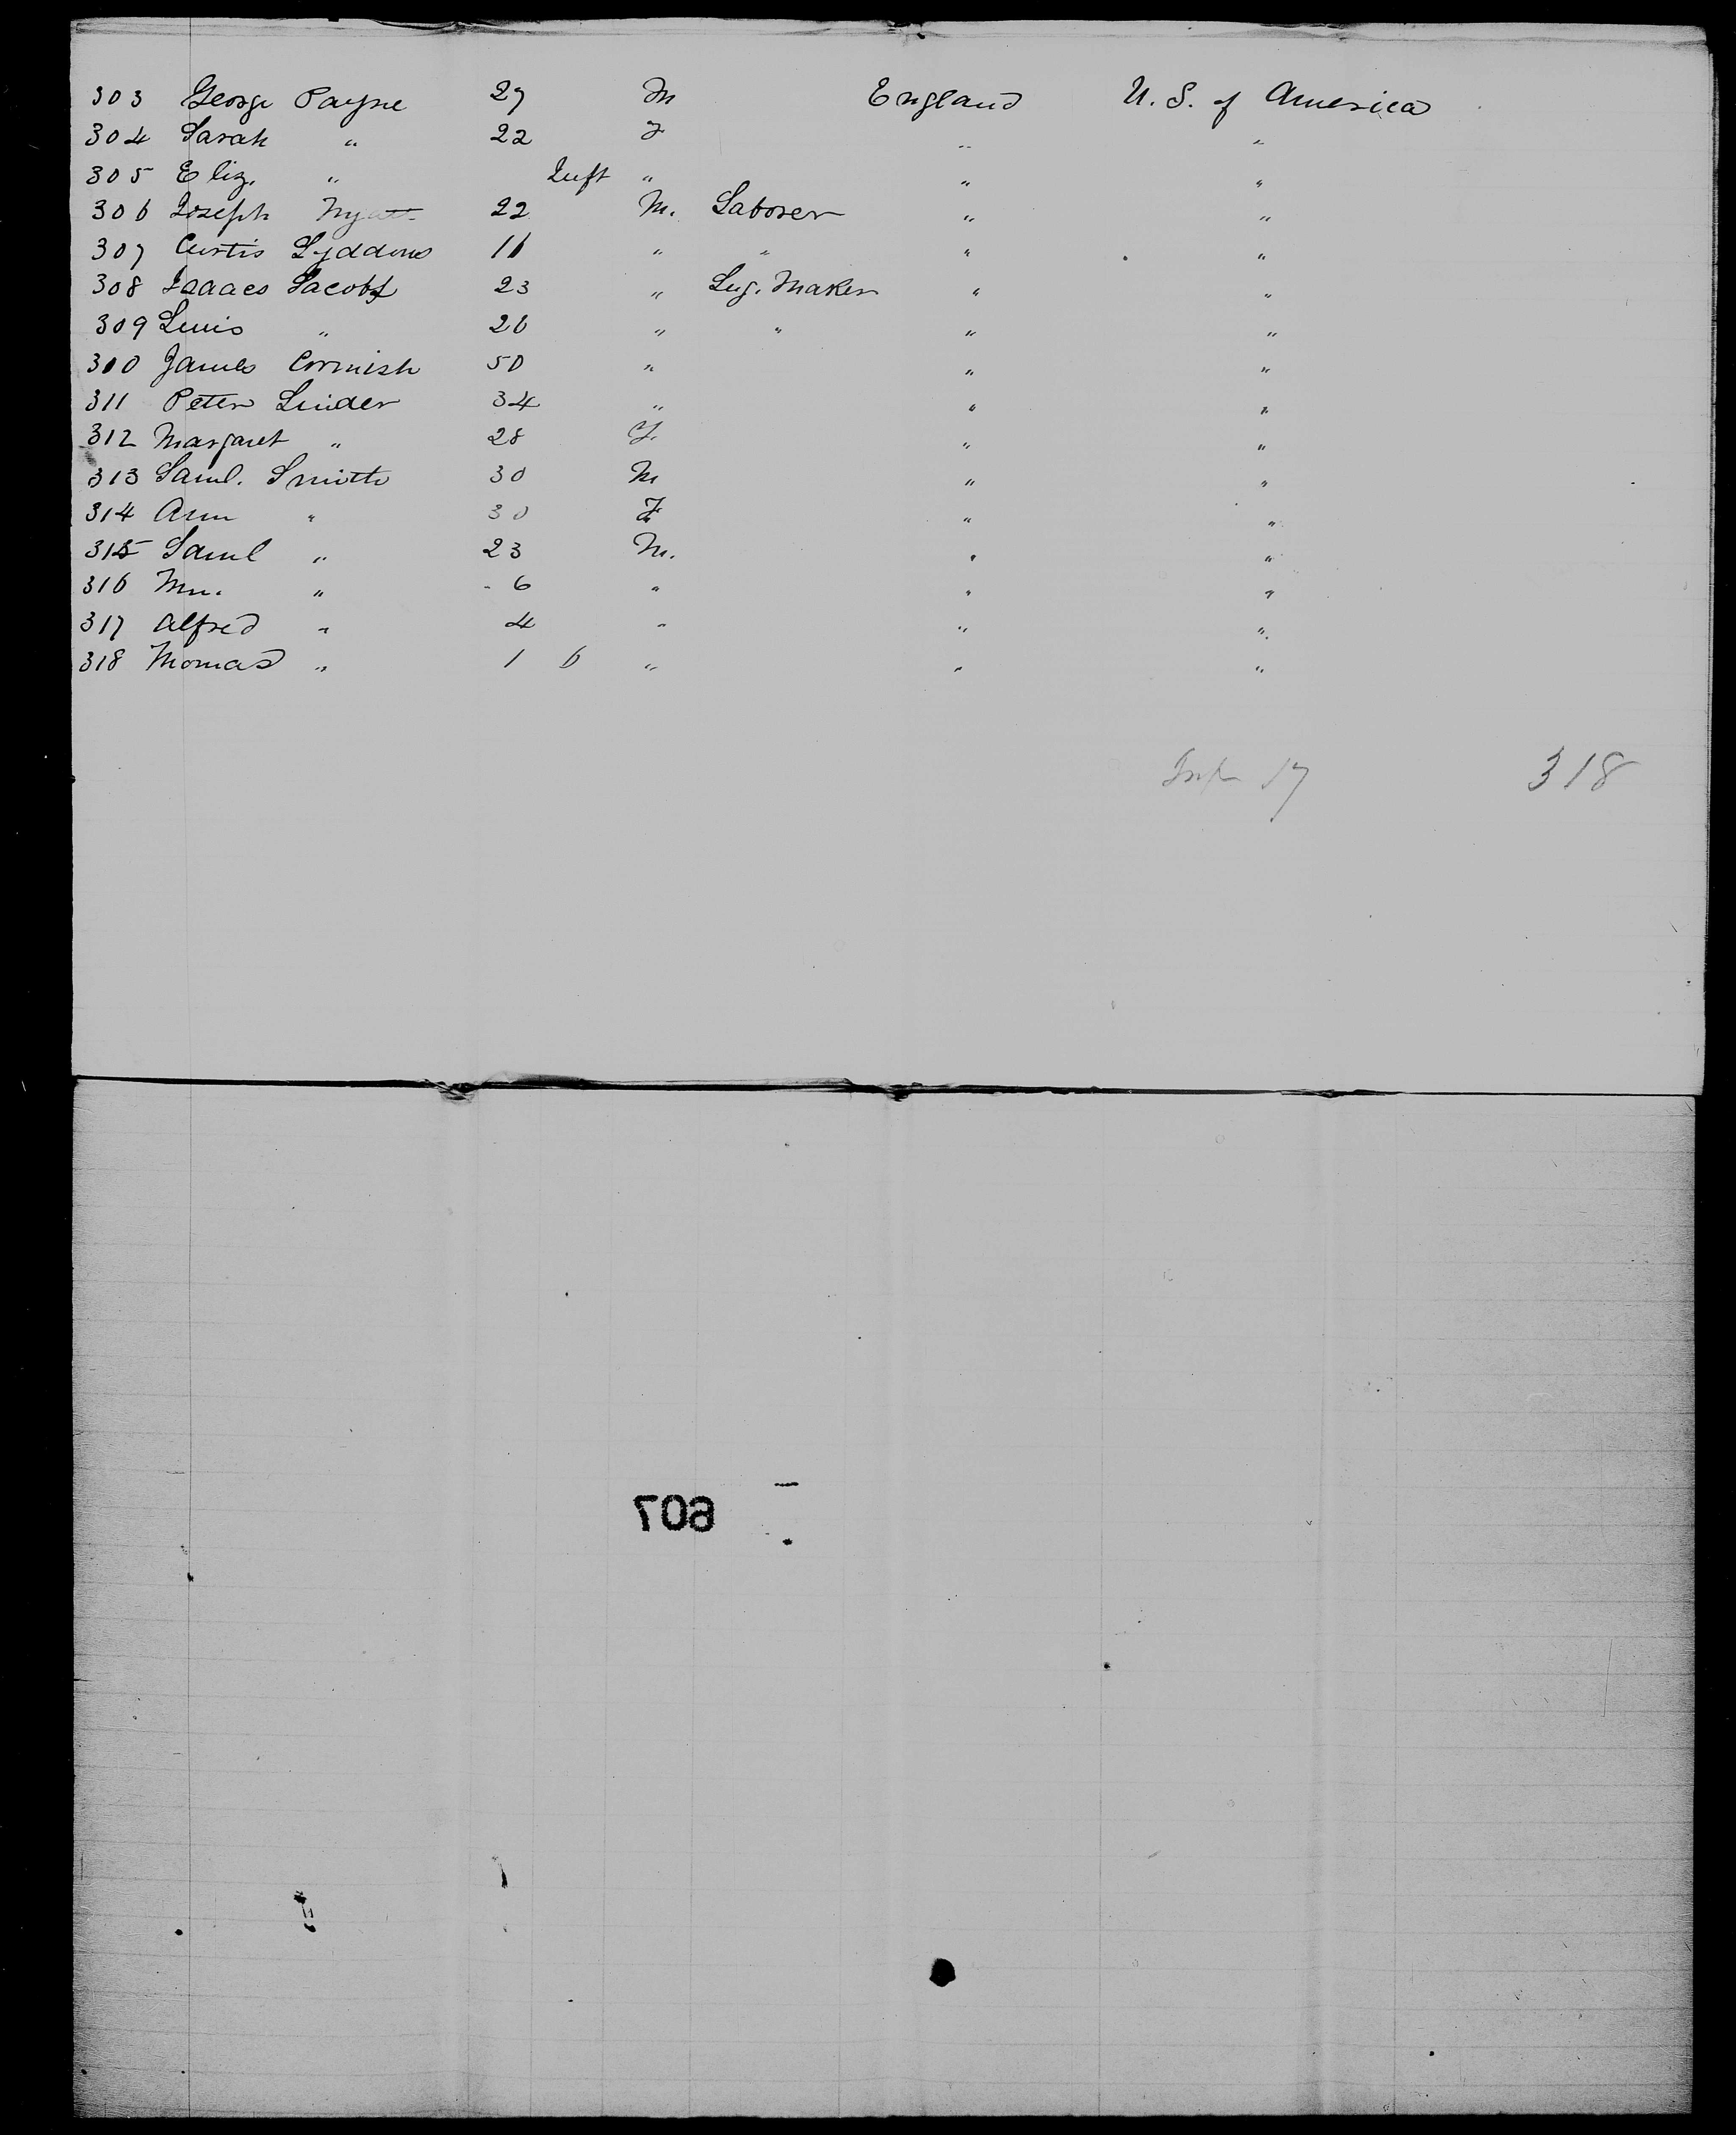 303 George Payne 27 M England U. S. of America
304 Sarah " 22 F " "
305 Eliz. " Inft " " "
306 Joseph Wyatt 22 M. Laborer " "
307 Curtis Lyddons 16 " " " "
308 Isaacs Jacobs 23 " Seg. Maker " "
309 Lewis " 26 " " " "
310 James Cornish 50 " " "
311 Peter Linder 34 " " "
312 Margaret " 28 F. " "
313 Saml. Smith 30 M " "
314 Ann " 30 F " "
315 Saml " 23 M. " "
316 Wm. " 6 " " "
317 Alfred " 4 " " "
318 Thomas " 1 6 " " "
17 318
607